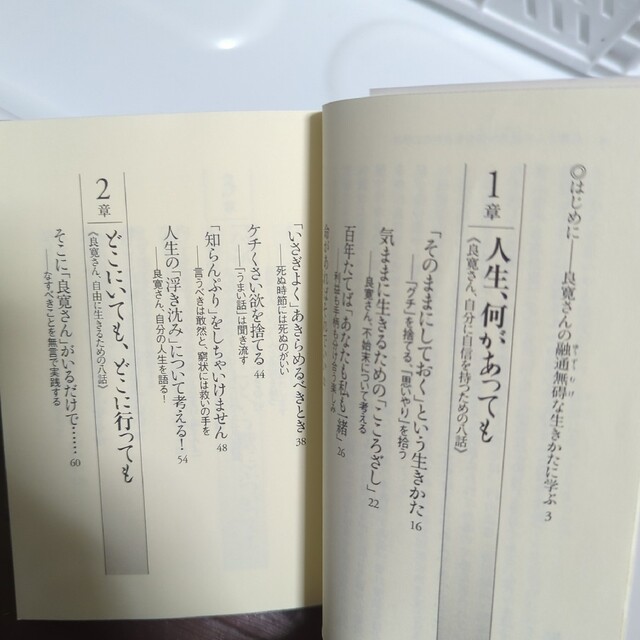 ◎はじめに──良寛さんの融通無碍な生きかたに学ぶ 3
ゆうずうむげ
1章 人生、何があっても
《良寛さん、自分に自信を持つための八話》
「そのままにしておく」という生きかた 16
──「グチ」を捨てる「思いやり」を拾う
気ままに生きるための「こころざし」 22
──良寛さん、不始末について考える
百年たてば「あなたも私も一緒」 26
「いさぎよく」あきらめるべきとき 38
──死ぬ時節には死ぬのがいい
ケチくさい欲を捨てる 44
──「うまい話」は聞き流す
「知らんぷり」をしちゃいけません 48
──言うべきは敢然と、窮状には救いの手を
人生の「浮き沈み」について考える! 54
──良寛さん、自分の人生を語る!
2章 どこにいても、どこに行っても
《良寛さん、自由に生きるための八話》
そこに「良寛さん」がいるだけで…… 60
──なすべきことを無言で実践する